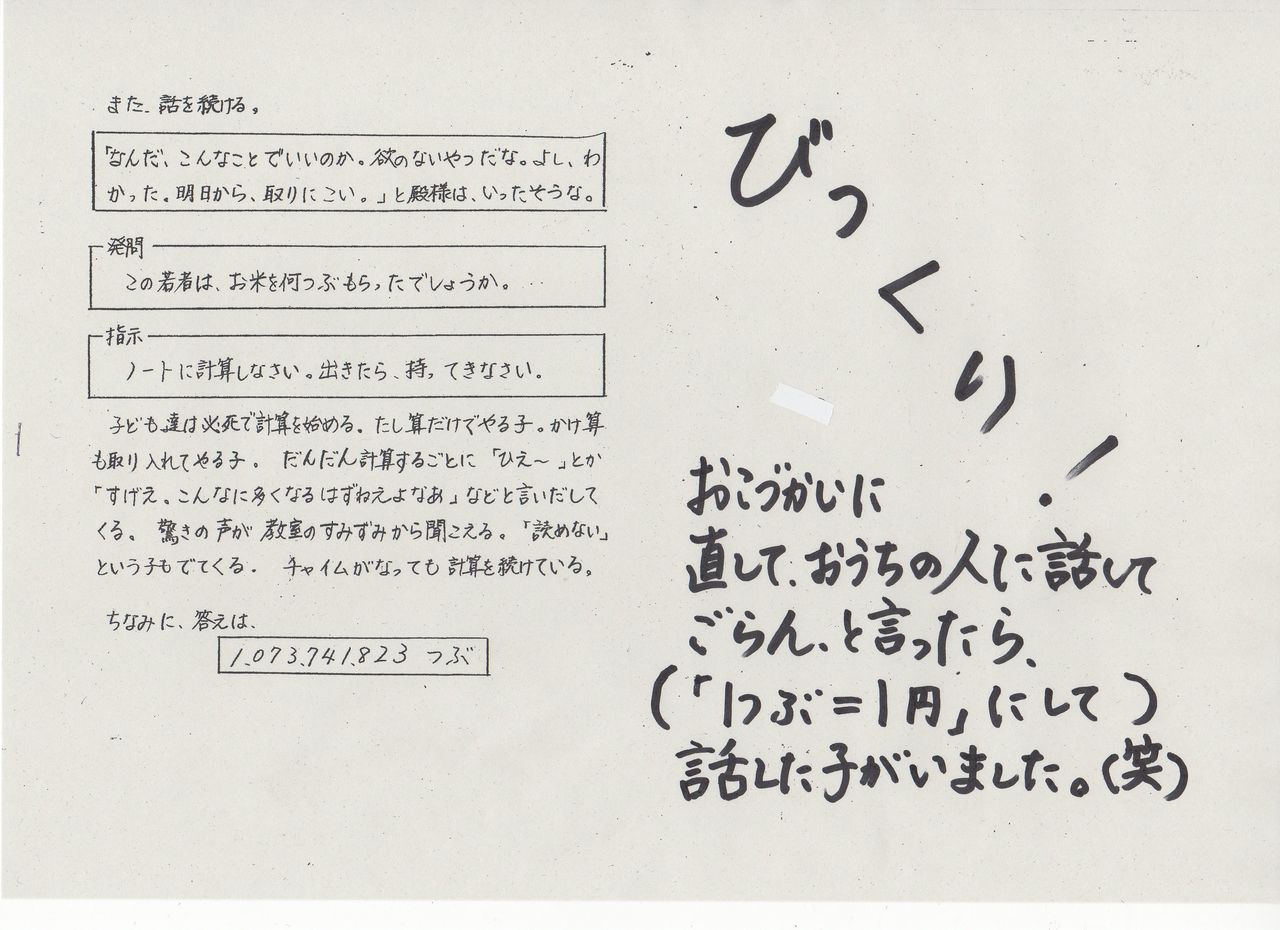 また、話を続ける。
「なんだ、こんなことでいいのか。欲のないやつだな。よし、わ
かった。明日から、取りにこい。」と殿様は、いったそうな。
発問
この若者は、お米を何つぶもらったでしょうか。
指示
ノートに計算しなさい。出きたら、持ってきなさい。
子ども達は必死で計算を始める。たし算だけでやる子。かけ算
も取り入れてやる子。だんだん計算するごとに「ひえ〜」とか
「すげえ。こんなに多くなるはずねえよなあ」などと言いだして
くる。驚きの声が教室のすみずみから聞こえる。「読めない」
という子もでてくる。チャイムがなっても計算を続けている。
ちなみに、答えは、
1,073,741,823 つぶ
びっくり!
おこづかいに
直して、おうちの人に話して
ごらん、と言ったら、
(「1つぶ=1円」にして)
話した子がいました。(笑)